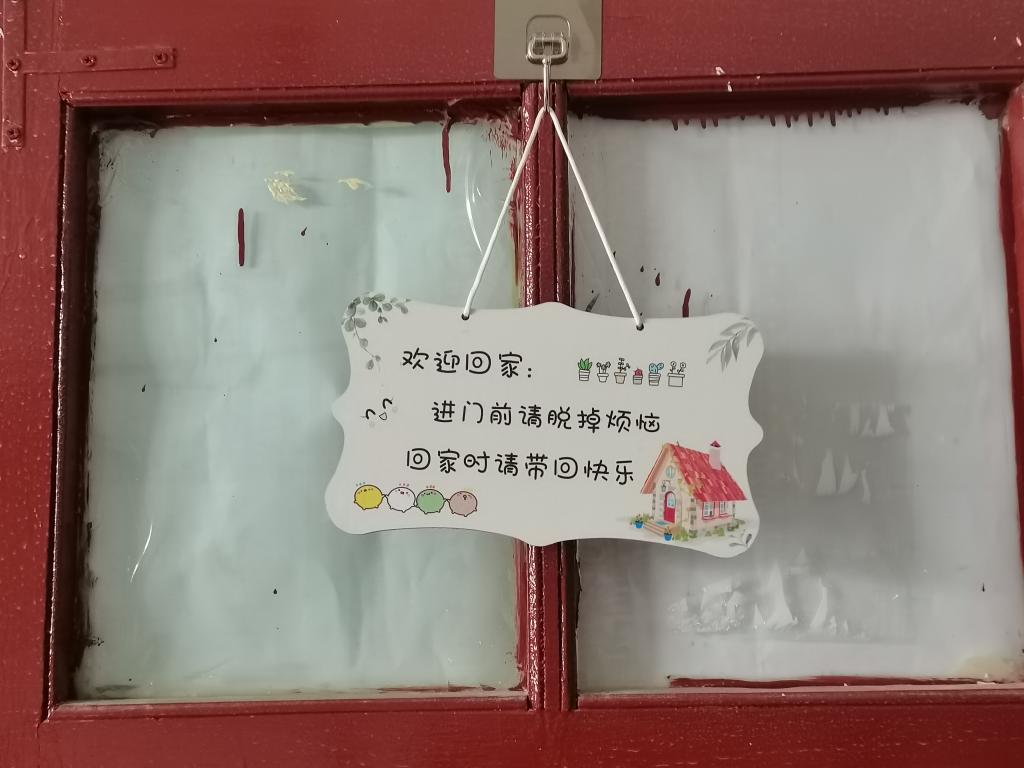 欢迎回家：
进门前请脱掉烦恼
回家时请带回快乐